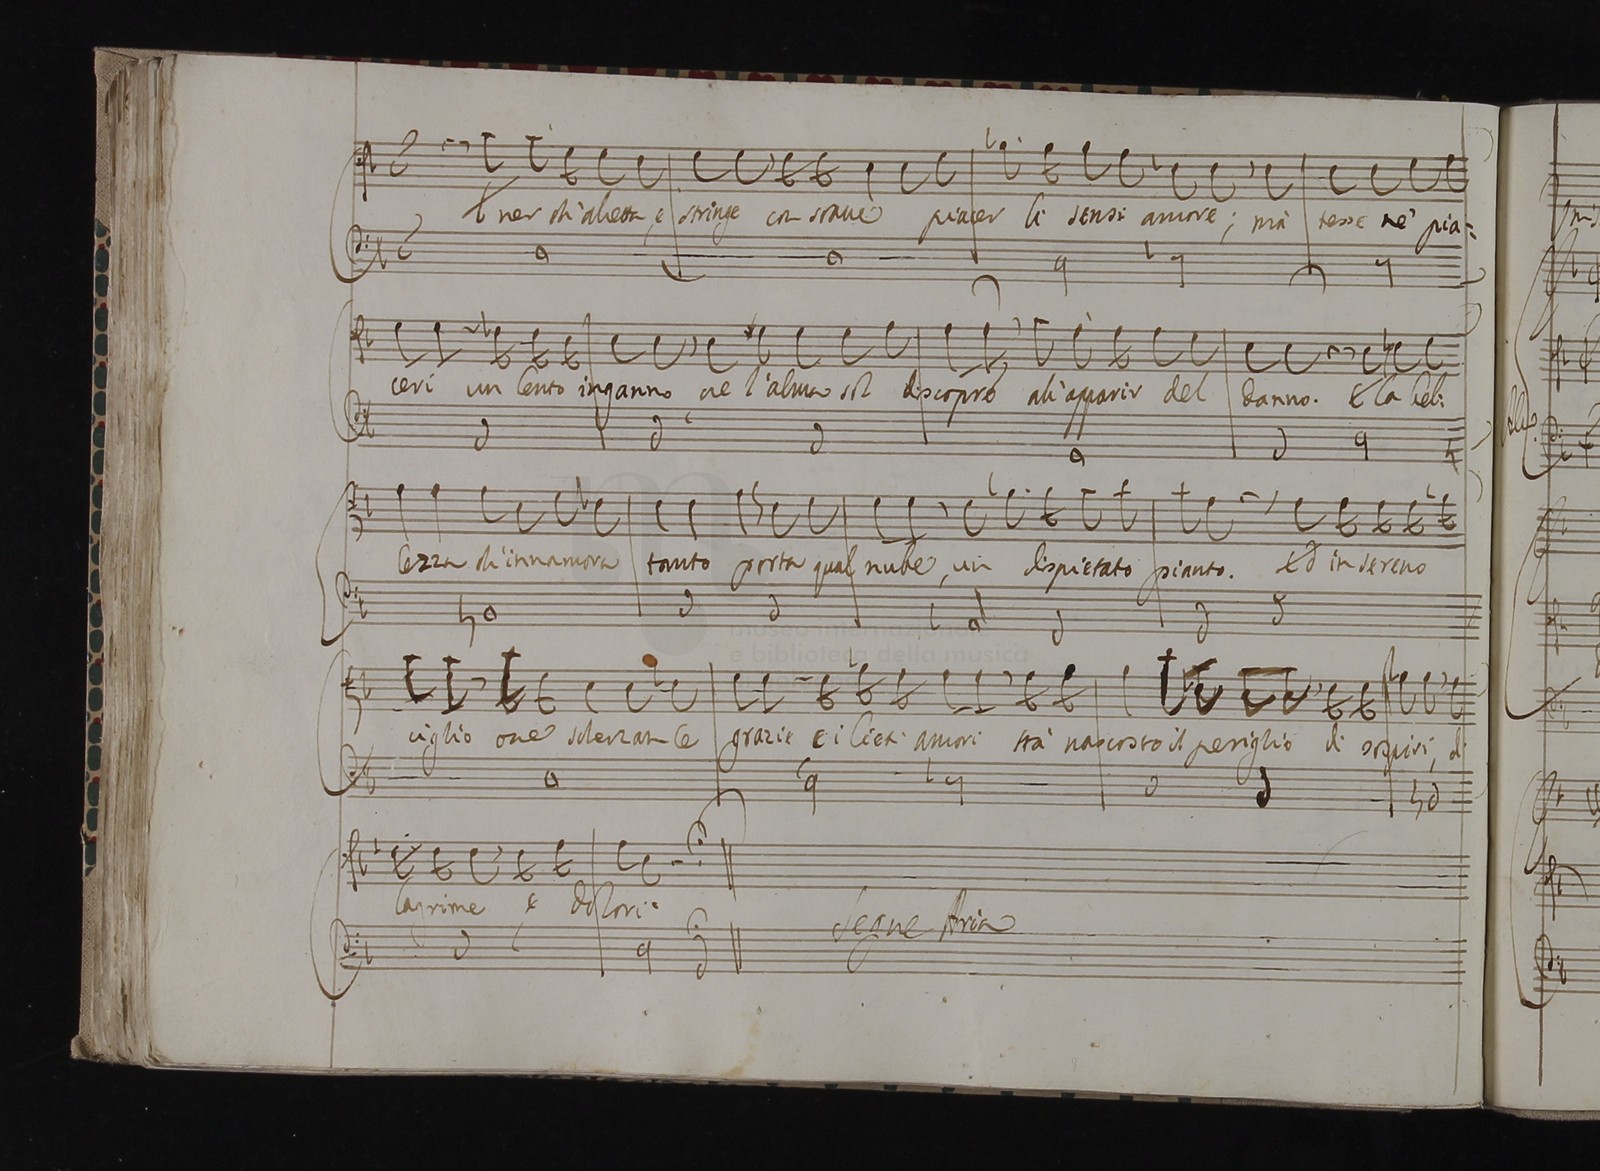 ch'aletta, e stringe con soave piacer li sensi amore; mà tesse ne' pia=
ceri un lento inganno ne l'alma sol discopre all'apparir del danno. E la bel=
lezza ch'innamora tanto porta qual nube, un dispietato pianto. Ed in sereno
ciglio ove scherzan le grazie e i lieti amori stà nascosto il periglio di sospiri, di
lagrime e dolori.
Segue Aria
museo internazionale
e biblioteca della musica